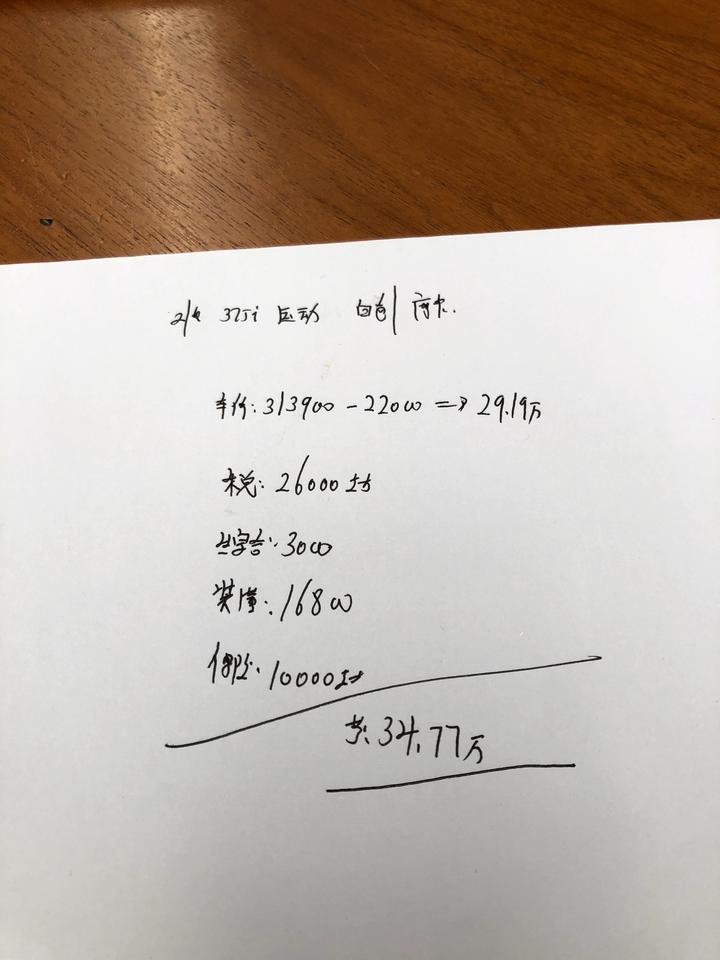 21款 375i 运动 白色/摩卡.
车价: 313900 - 22000 => 29.19万
税: 26000左右
上牌: 3000
装潢: 16800
保险: 10000左右
共: 34.77万